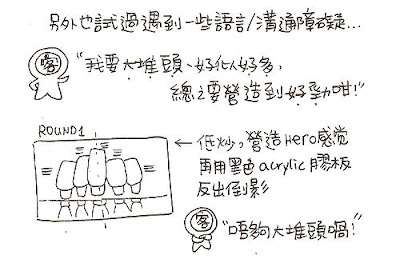 另外也試過遇到一些語言/溝通障礙...
客
"我要大堆頭、好似好多,
總之要營造到好勁咁!"
ROUND1
← 低炒,營造Hero感觉
再用黑色acrylic膠板
反出倒影
客
"唔夠大堆頭喎!"